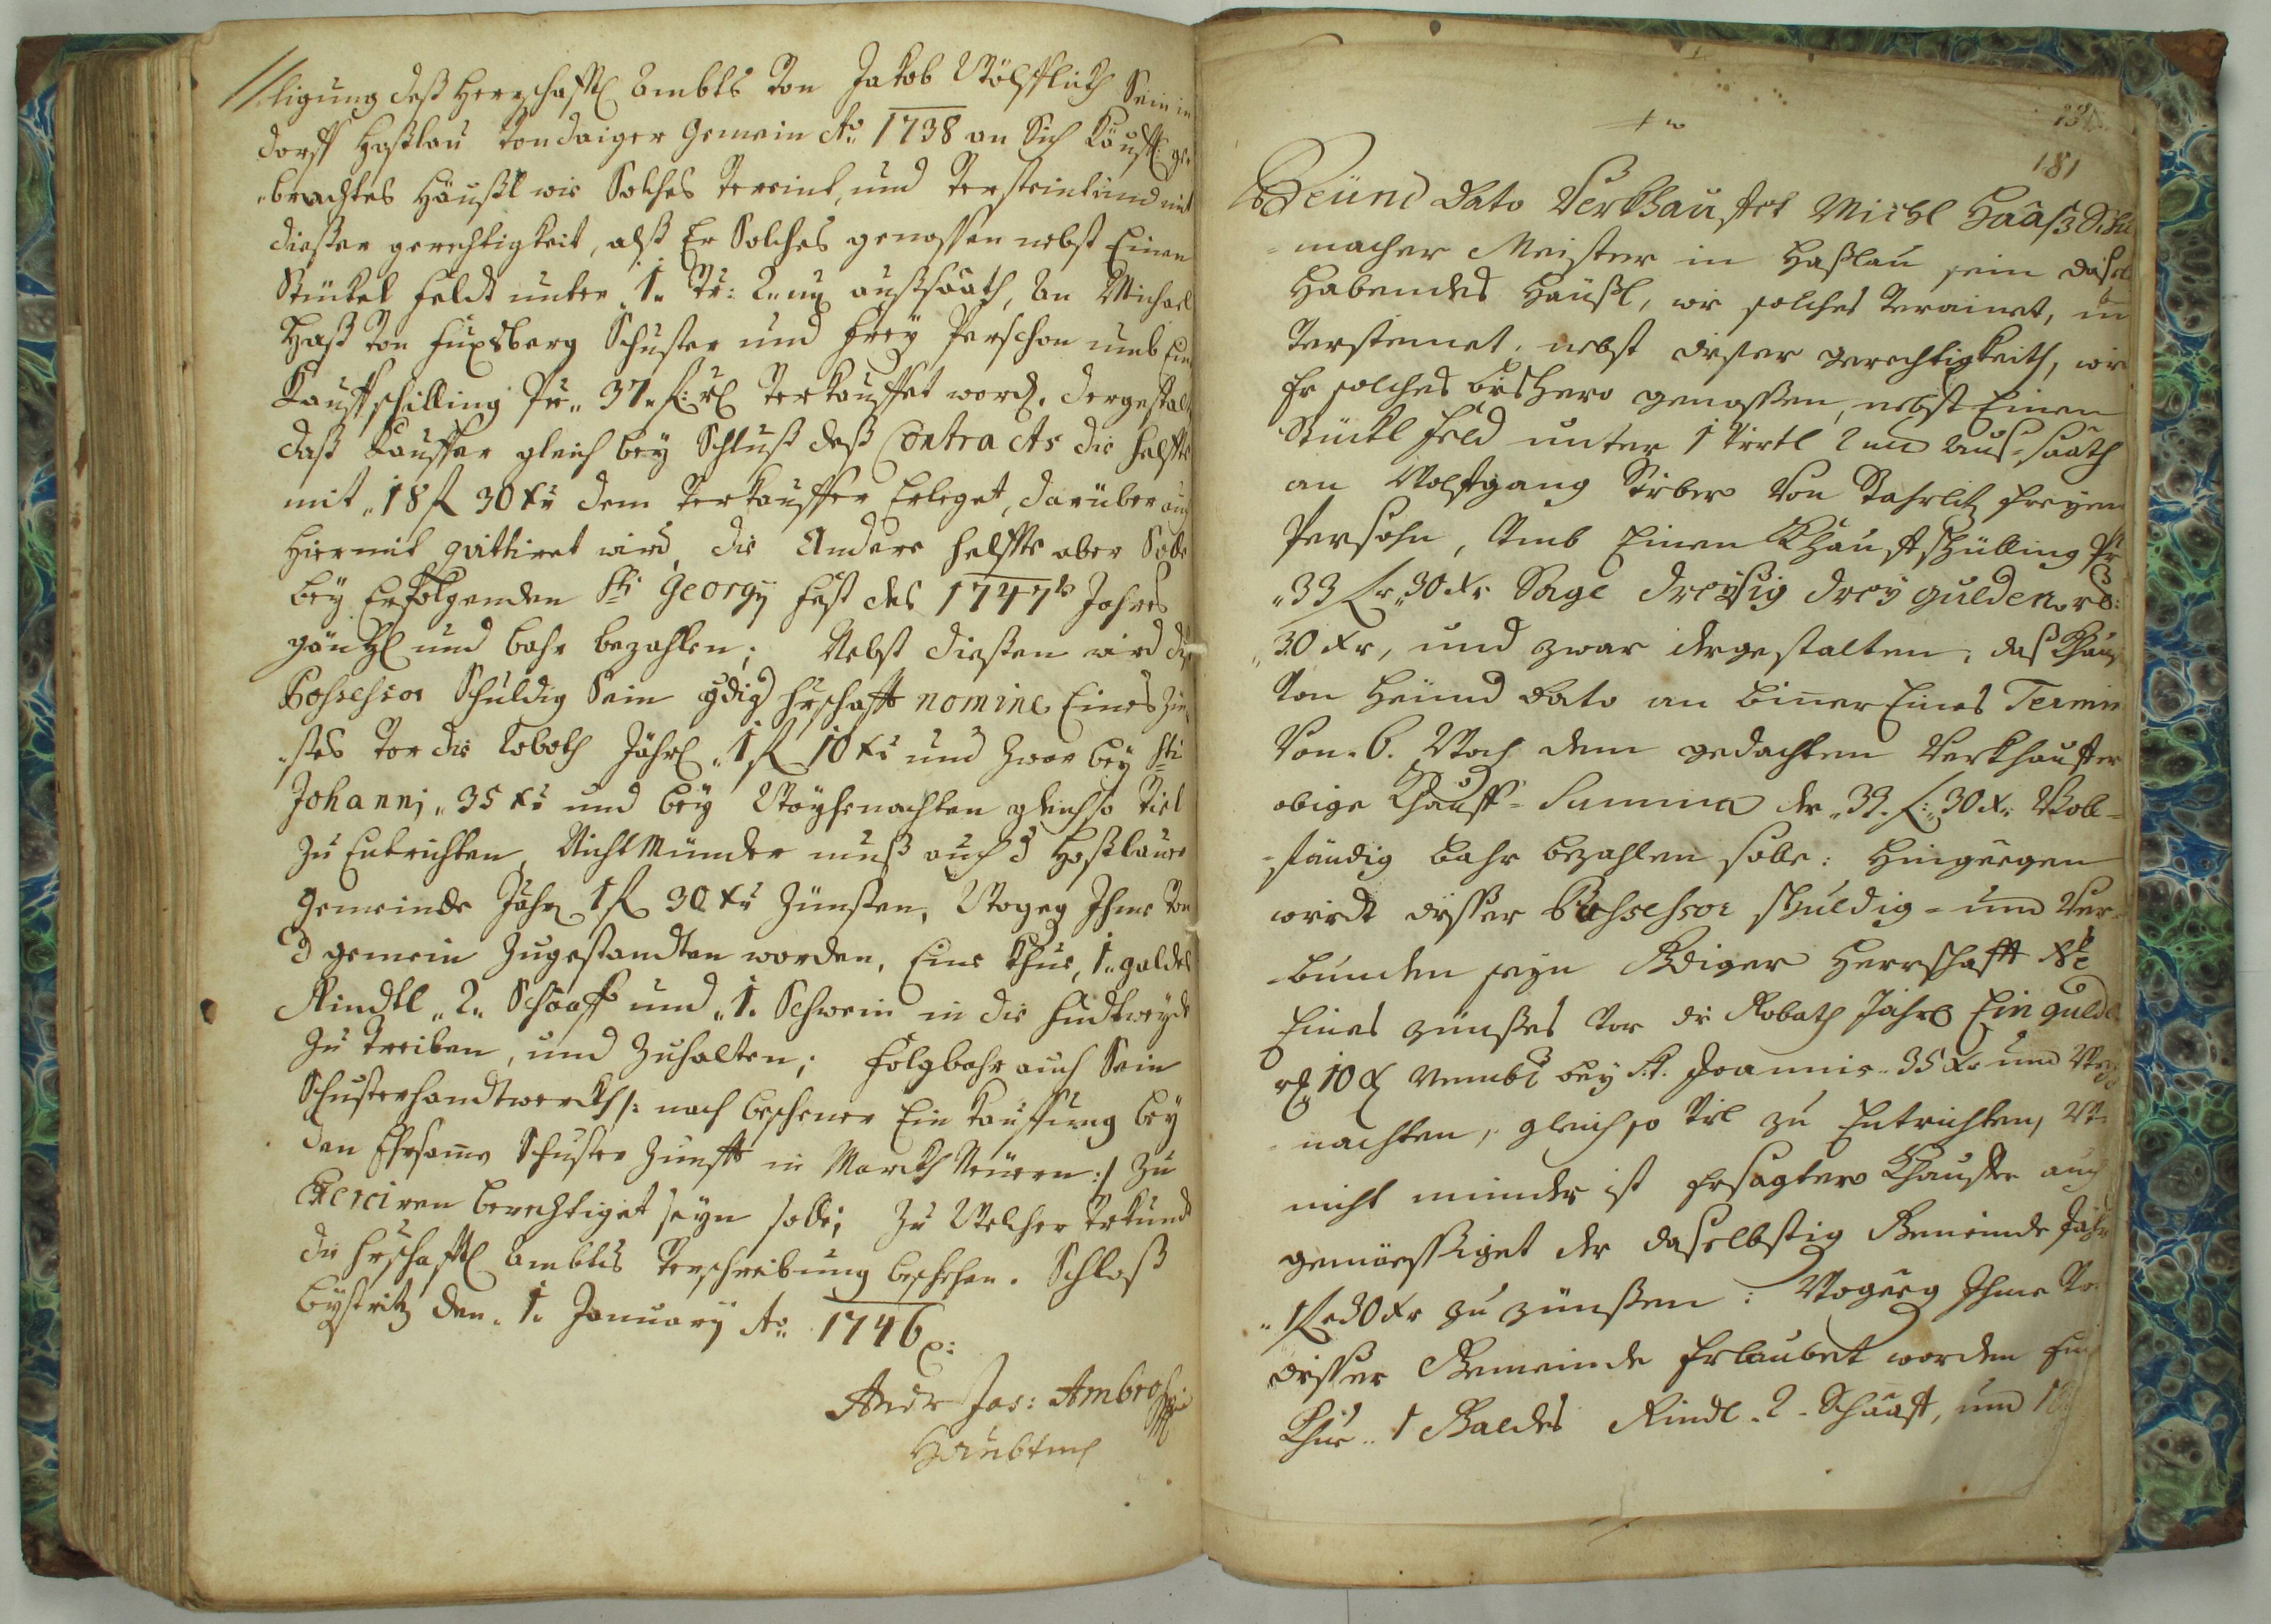 ligung deß Herrschafftl Ambts von Jakob Wölfflick Sein in
dorff Haßlau von daiger Gemein Ao 1738 an Sich Käuffl: ge„
„brachtes Häußl wie Solches verreint, und versteint und mit
dießer gerechtigkeit, alß Er Solches genossen nebst Einen
Stückel Feldt unter „1„ Vr: außsaath, An Michael
Haß von Fuxsberg Schuster und Frey Perschon umb Ein
Kauffschilling Pr„ 37„ f: rl verkauffet word. dergestalt
daß Kauffer gleich bey Schluß deß Contracts die helffte
mit „18 f 30 xr dem verkauffer Erleget, darüber auch
hiermit quittiret wird, die Andere helffte aber Solle
bey Erfolgenden Sti Georgy Fest des 1747ts Jahres
gäntzl und bahr bezahlen; Nebst dießen wird dießer
Possessor Schuldig Sein gdig hrschafft nomine Eines Zin„
„ses vor die Roboth Jährl „1 f 10 xr und zwar bey Sti
Johannj „35 xr und bey Weyhenachten gleichso viel
zu Entrichten, Nicht Münder muß auch d Haßlauer
Gemeinde Jährl 1 f 30 xr Zünßen, Wogeg Ihme von
d gemein Zugestandten worden, Eine Khue, 1„ galdes
Rindtl „2„ Schaaff und „1„ Schwein in die Hudtweyde
zu treiben, und zuhalten; folgbahr auch Sein
Schusterhandtwerckh /: nach beschener Ein Kauffung bey
den Ehrsamen Schuster Zunfft in Marckh Neuern :/ zu
Exerciren berechtiget seyn solle; Zu Welcher Urkundt
die hrschafftl Ambts Verschreibung beschehen. Schloß
Bystritz den „1. January Ao 1746
Andr Jos: Ambrosi
Haubtm
181
Heünd Dato Verkhauffet Michl Haaß Schu
„macher Meister in Haßlau sein daselbst
Habendes Häußl, wie solches verainet, und
versteinet, nebst dießer gerechtigkeith, wie
Er solches bishero genossen, nebst Einen
Stückl Feld unter 1 Virtl aus=saath
an Wolfgang Sieber von Stahrlitz freyen
Persohn, Umb Einen Khauffschülling Pr
„33 f„ 30 xr Sage dreyßig drey gulden rl:
„30 xr, und zwar dergestalten, daß Khauf
von Heünd Dato an binnen Eines Termin
von 6. Woch dem gedachten Verkhauffer
obige Khauff=Summa der „33. f: „30 x: Vol=
=ständig bahr bezahlen solle: Hingegen
wirdt dießer Possessor schuldig= und Ver=
=bunden seyn Gdiger Herrschafft
Eines zünßes vor die Robath Jährl Ein guld
rl 10 x Nembl bey St. Joannis „35 xr und Wey
nachten, gleich so viel zu Entrichten,
nicht minder ist ersagter Khauffer auch
gemässiget der daselbstig Gemeinde Jähr
„1 f 30 xr zu zünßen: Wogeg Ihme Vo
dießer Gemeinde Erlaubet worden Ein
Khue „1 Galdes Rindl „2„ Schaaff, und 1